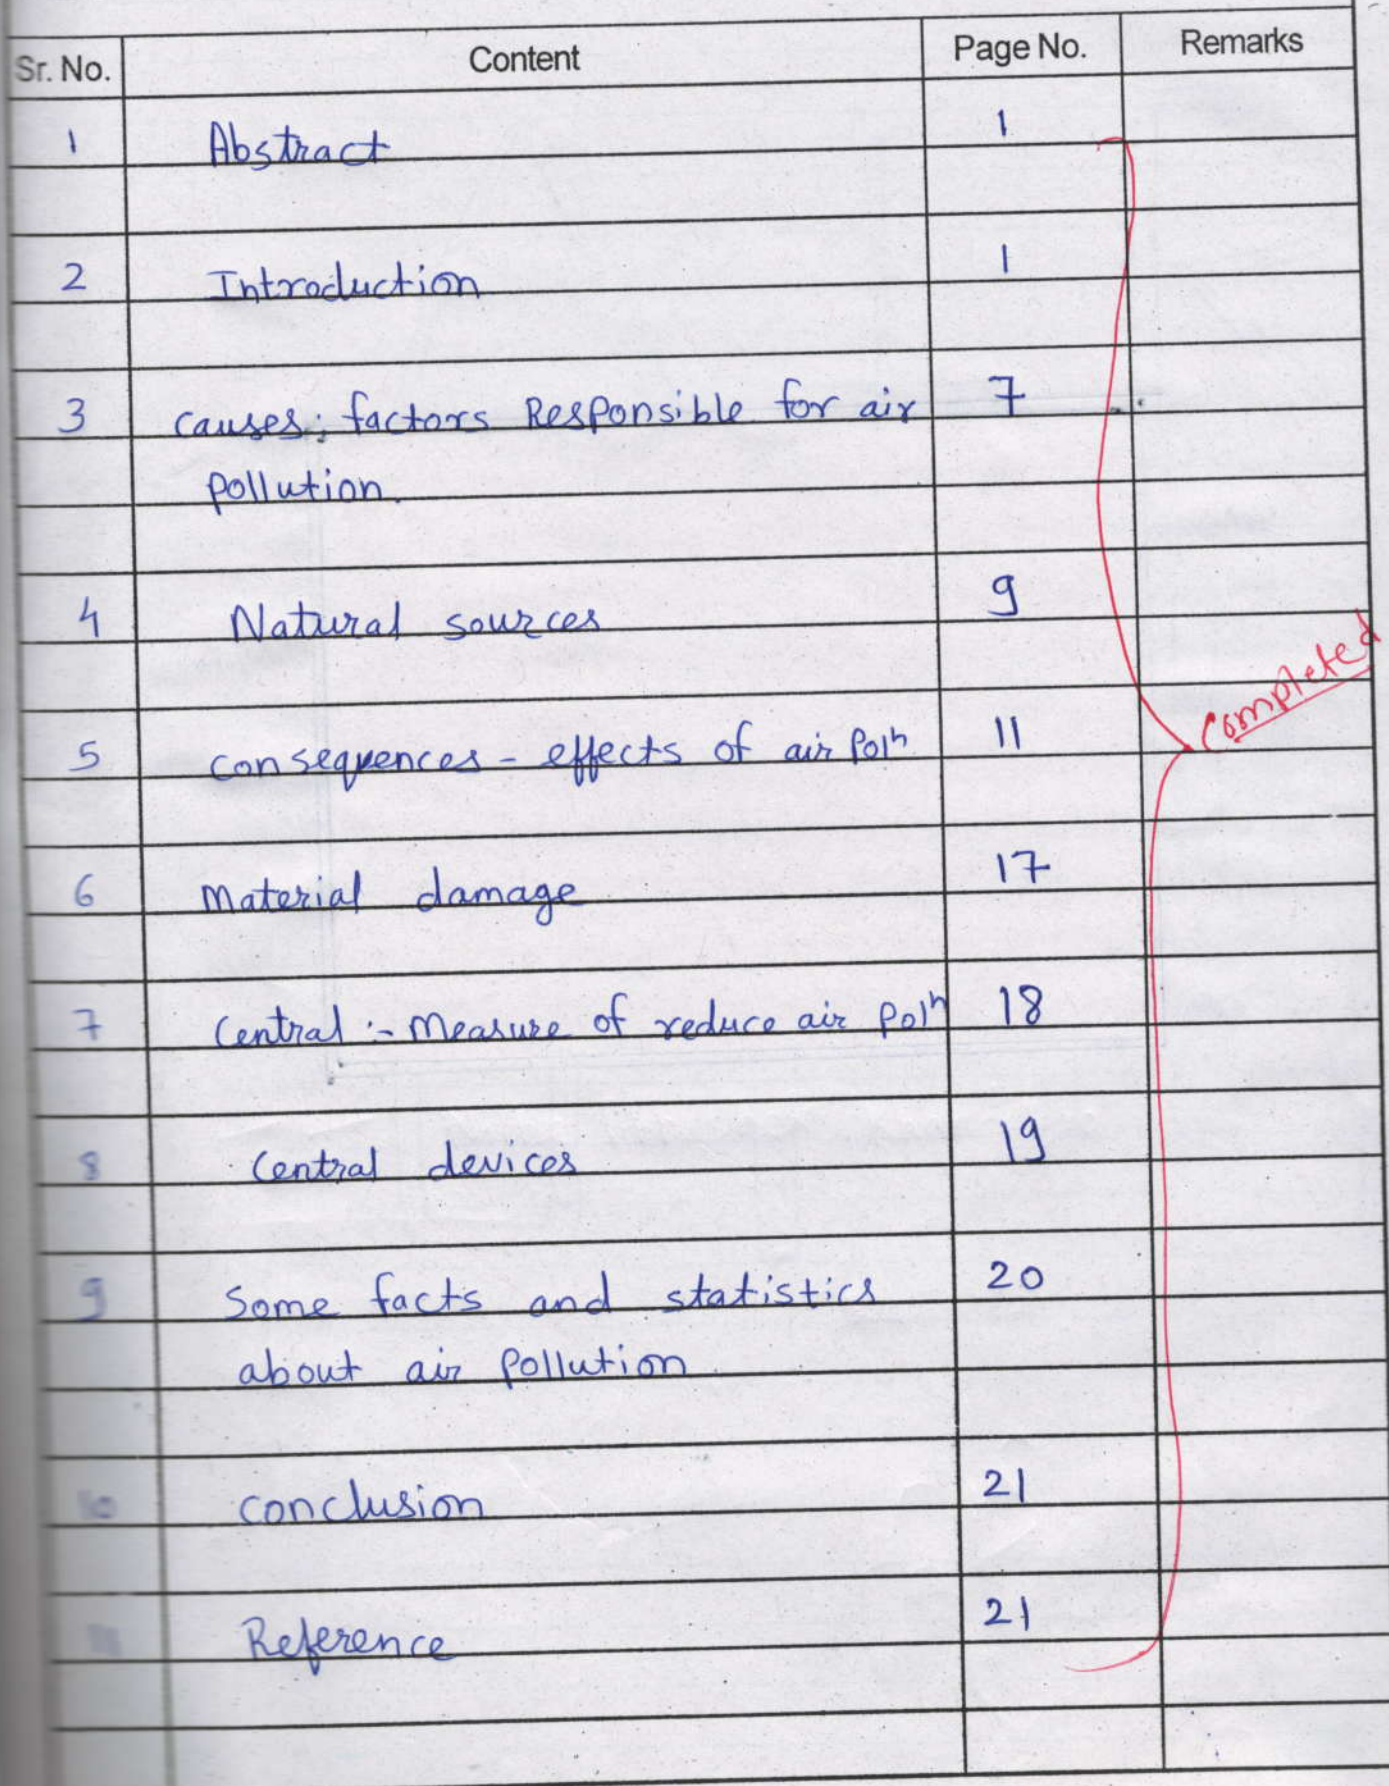 Sr. No. Content Page No. Remarks
1 Abstract 1
2 Introduction 1
3 causes; factors Responsible for air 7
pollution.
4 Natural sources 9
Completed
5 consequences - effects of air polⁿ 11
6 Material damage 17
7 Central :- Measure of reduce air polⁿ 18
8 Central devices 19
9 Some facts and statistics 20
about air pollution
10 conclusion 21
11 Reference 21